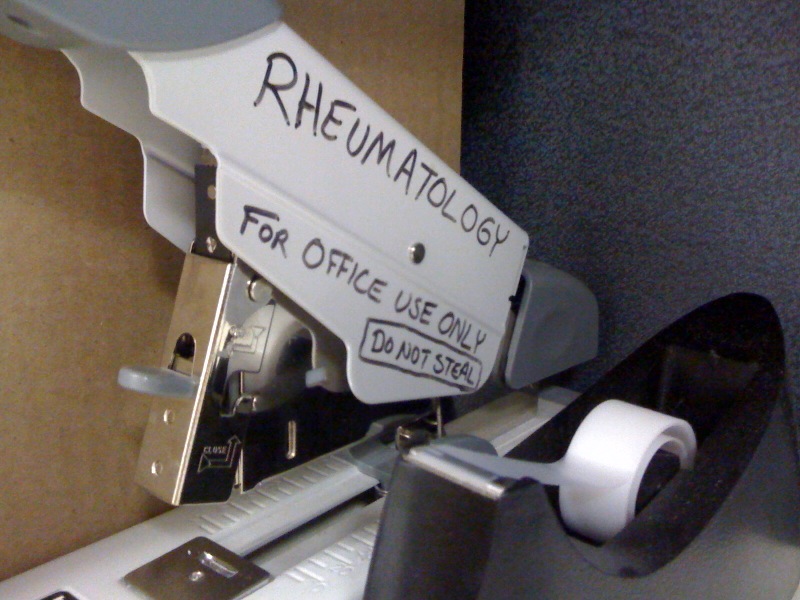 RHEUMATOLOGY
FOR OFFICE USE ONLY
DO NOT STEAL
CLOSE